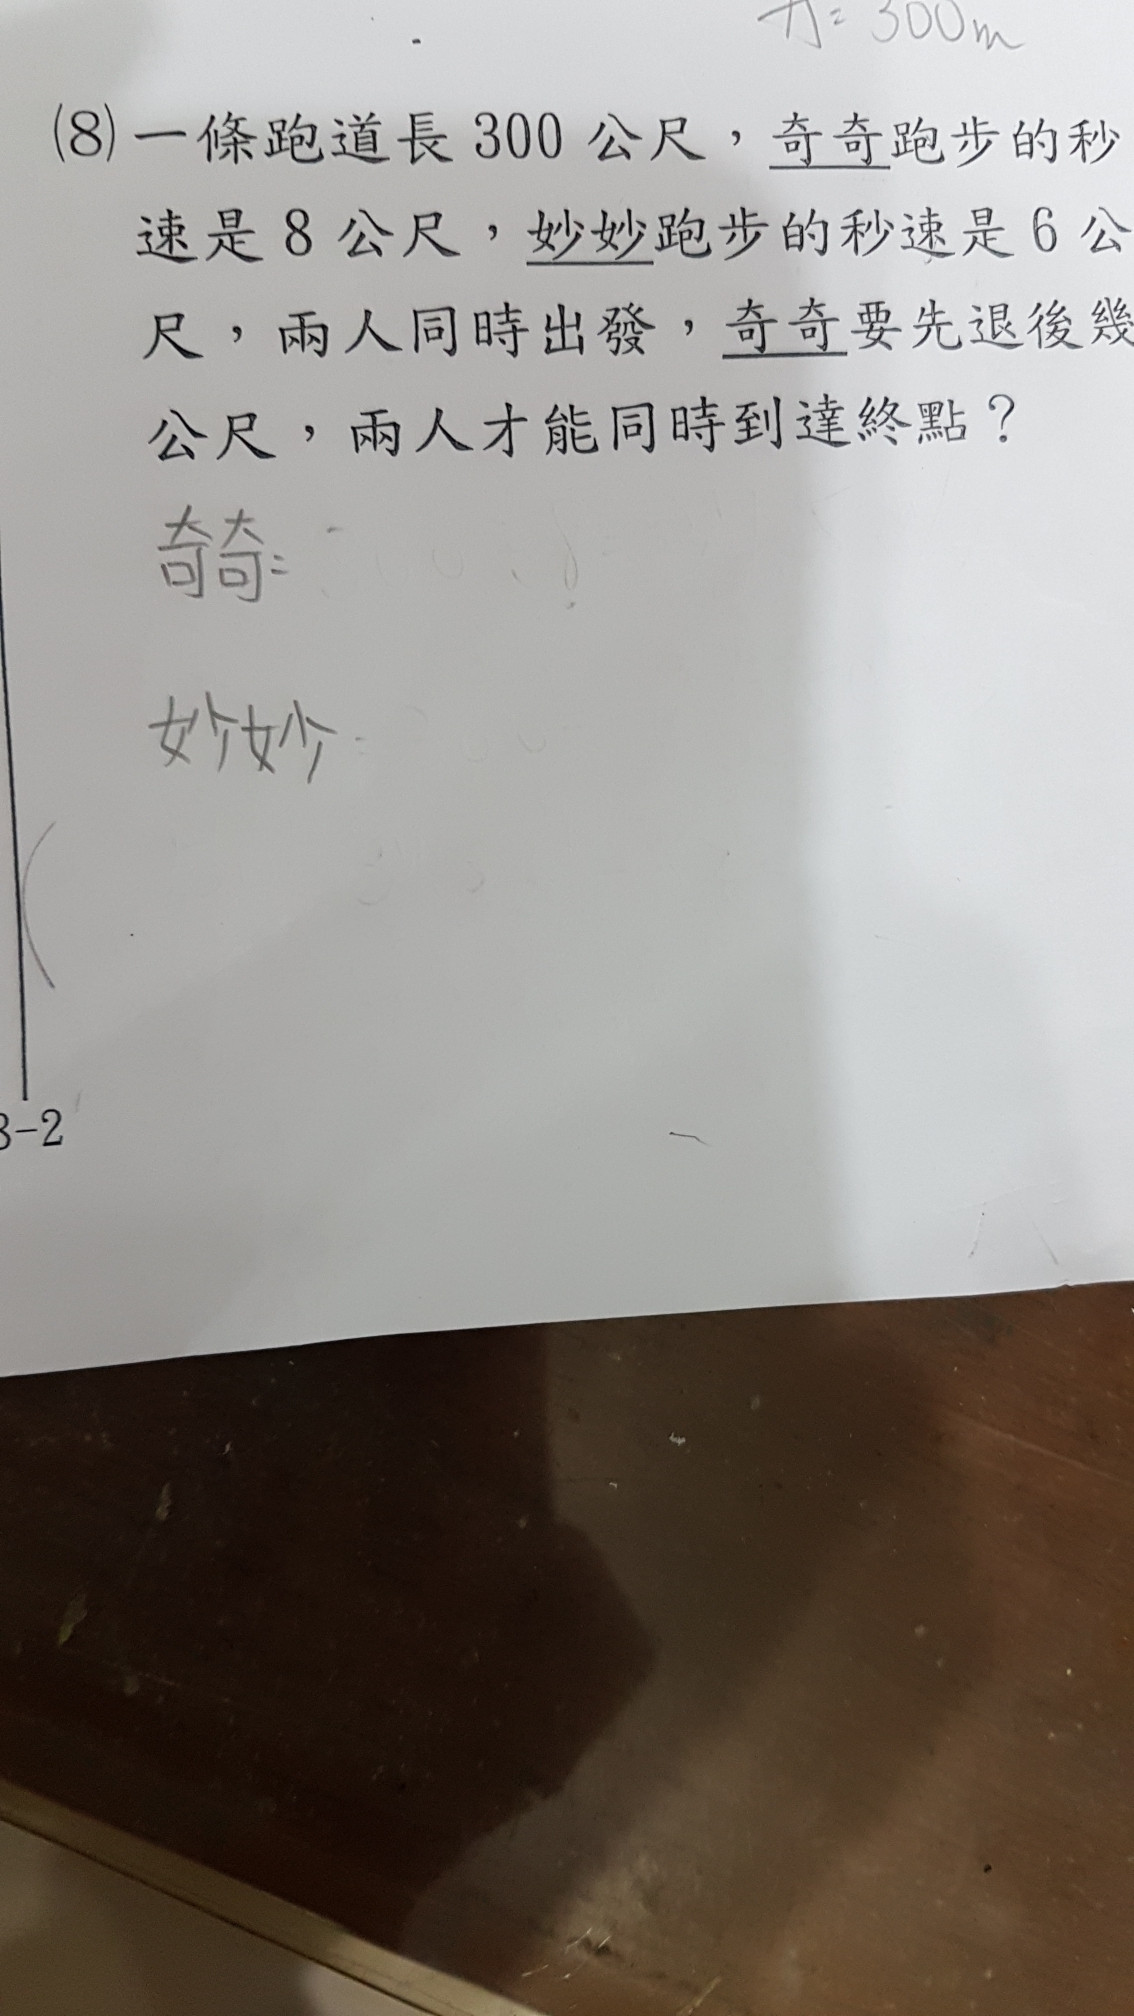 =300m
(8)一條跑道長300公尺，奇奇跑步的秒
速是8公尺，妙妙跑步的秒速是6公
尺，兩人同時出發，奇奇要先退後幾
公尺，兩人才能同時到達終點？
奇奇=
妙妙=
3-2